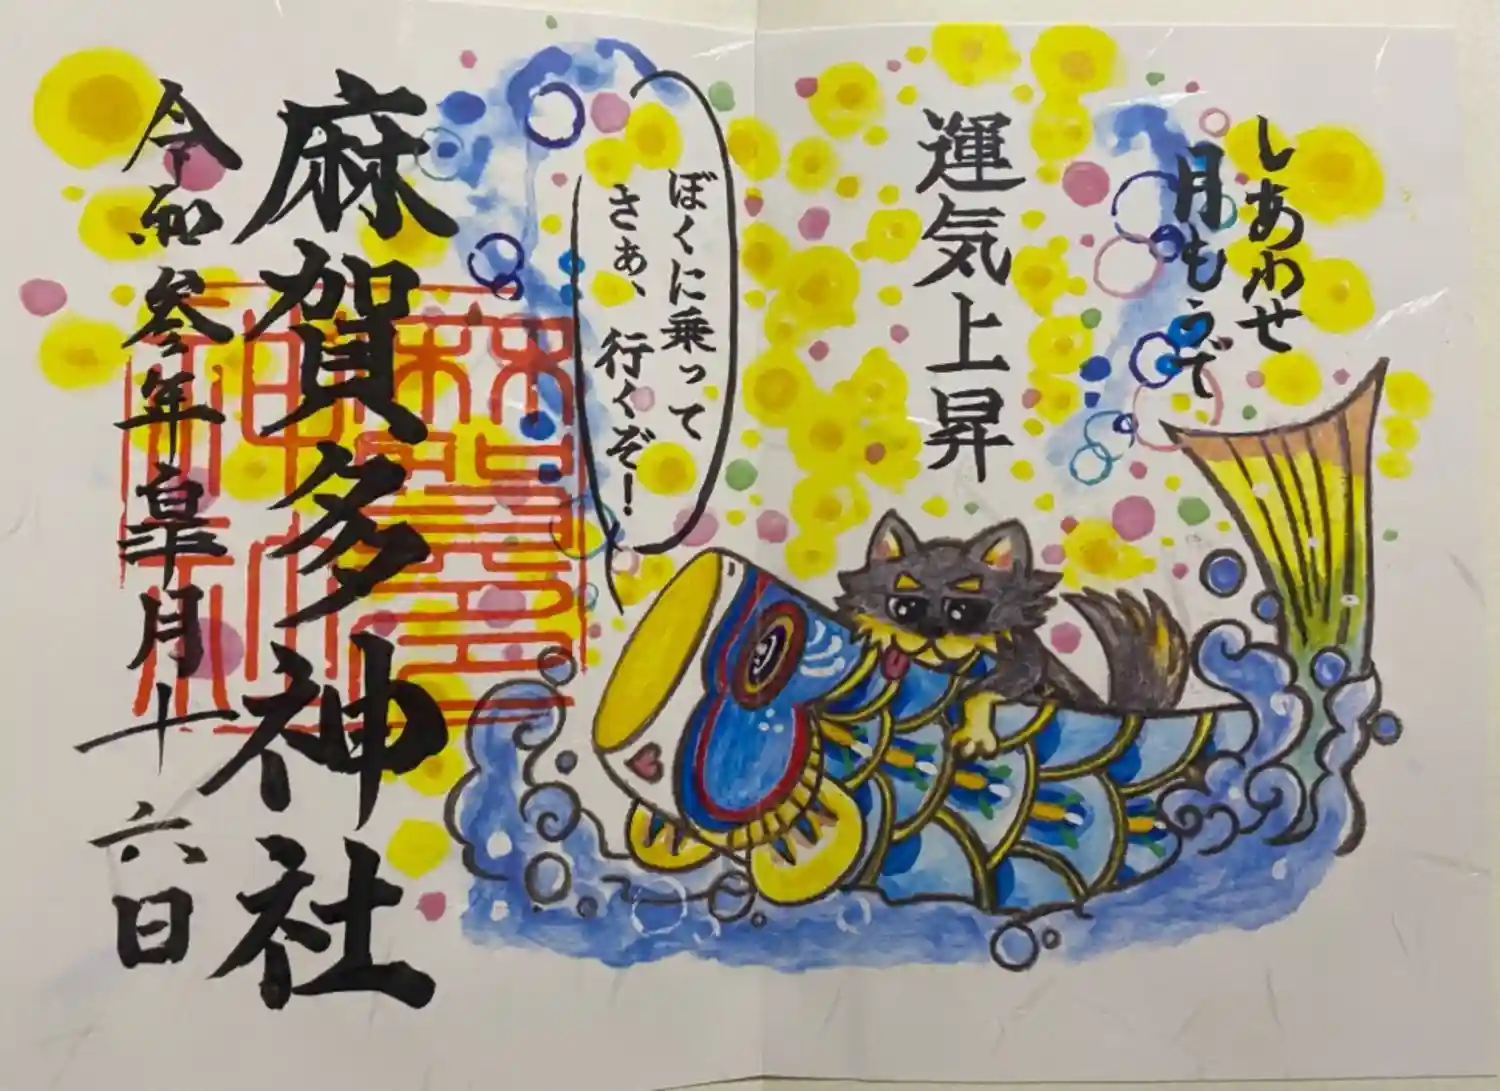 しあわせ
月もうで
運気上昇
ぼくに乗って
さぁ、行くぞ!
麻賀多神社
令和参年皐月十六日